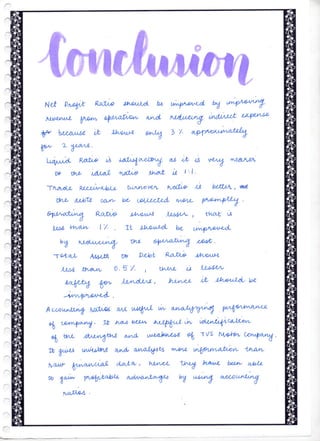 Conclusion
Net Profit Ratio should be improved by improving
revenue from operation and reducing indirect expense
because it shows only 3 % approximately
for 2 years.
Liquid Ratio is satisfactory as it is very nearer
to the ideal ratio that is 1:1.
Trade Receivables turnover ratio is better,
the debts can be collected more promptly.
Operating Ratio shows lesser, that is
less than 1%. It should be improved
by reducing the operating cost.
Total Assets to Debt Ratio shows
less than 0.5%, there is lesser
safety for lenders, hence it should be
improved.
Accounting ratios are useful in analysing performance
of company. It has been helpful in identification
of the strengths and weakness of TVS Motors Company.
It gives investors and analysts more information than
raw financial data, hence they have been able
to gain profitable advantage by using accounting
ratios.